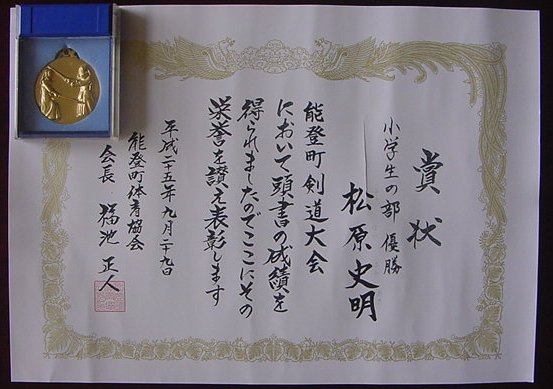 賞状
小学生の部 優勝
松原史明
能登町剣道大会
において頭書の成績を
得られましたのでここにその
栄誉を讃え表彰します
平成二十五年九月二十九日
能登町体育協会
会長 福池正人